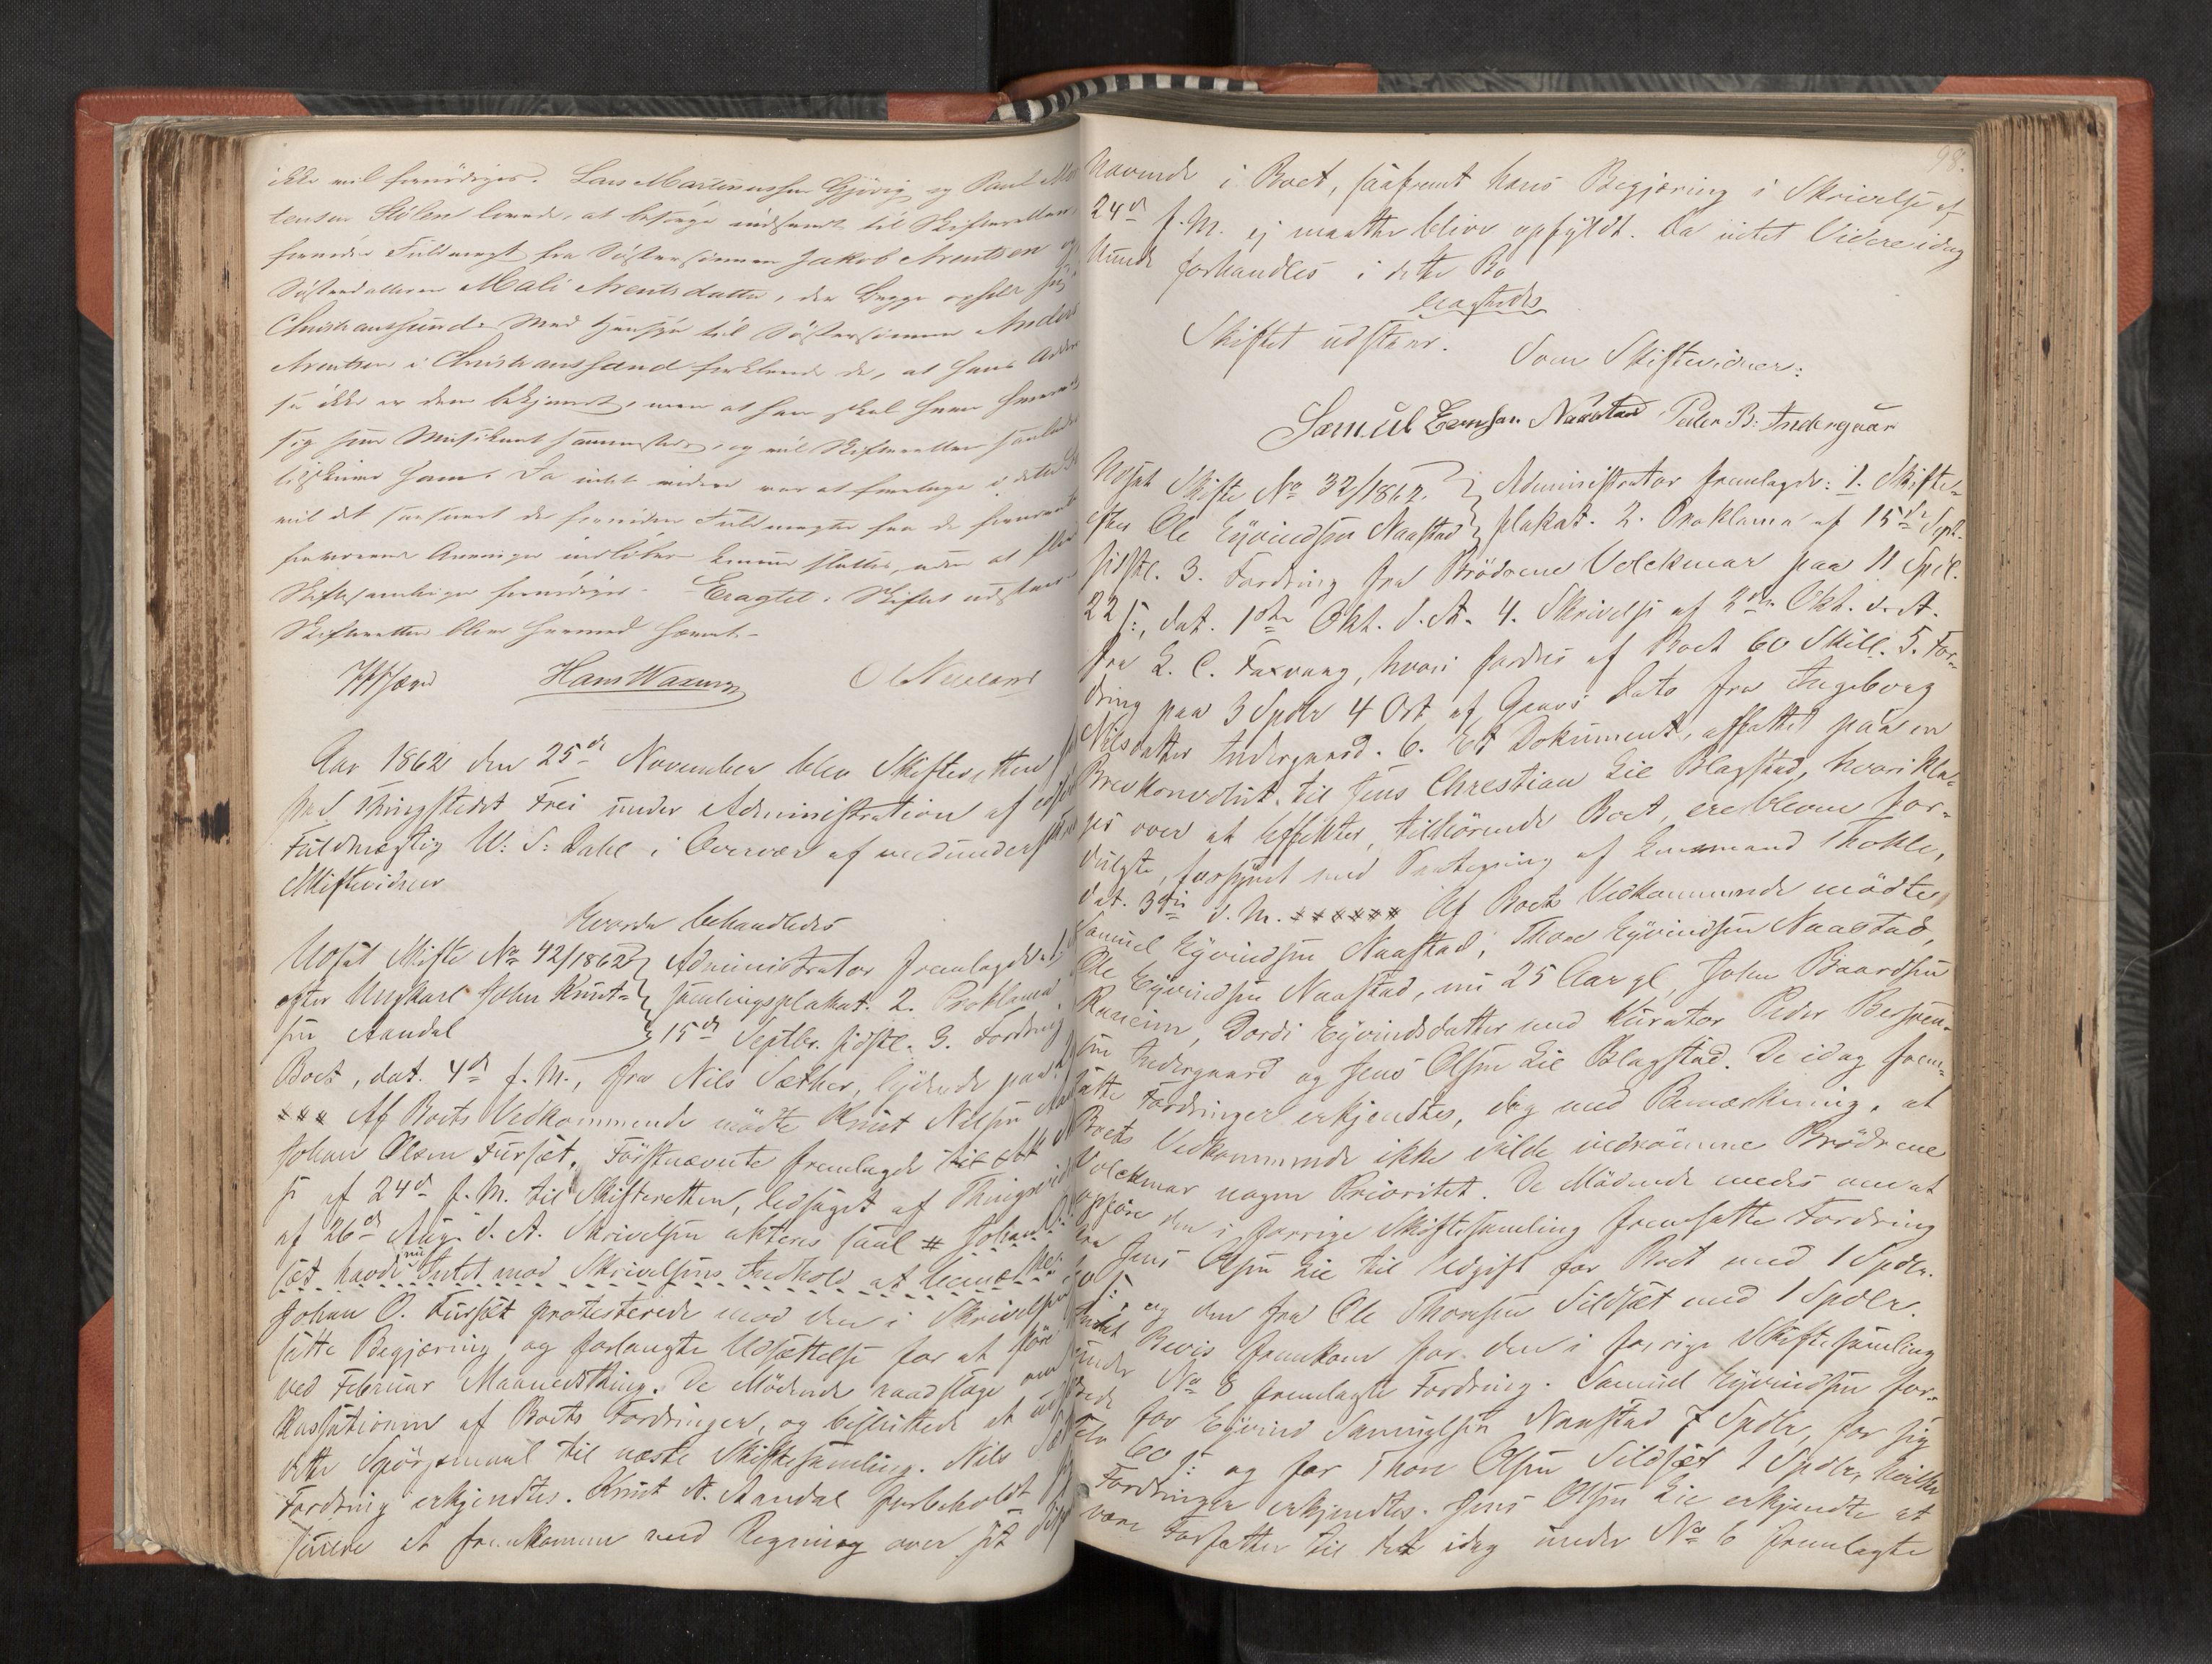 ikke vil fornödiges. Lars Martinussen Gjövig og Paul Mor
tensen Stölen lovede, at besörge indsendt til Skifteretten
fornöden Fuldmagt fra Söstersönnen Jakob Arentsen og
Sösterdatteren Mali Arentsdatter, der begge opholde sig i
Christianssund. Med Hensyn til Söstersönnen Anders
Arentsen i Christianssand forklarede de, at hans Adres
se ikke er dem bekjendt, men at han skal have
sig som Musikant sammesteds, og vil Skifteretten saaledes
tilskrive ham. Da intet videre var at foretage i dette Bo
vil det saasnart de fornödne Fuldmagter fra de
fraværende Arvinger indlöber kunne sluttes, uden at flere
Skiftesamlinger fornödiges. Eragtet. Skiftet udstaar
Skifteretten blev hermed hævet.
Hans Waxwog
Aar 1862 den 25de November blev Skifteretten sat
paa Thingstedet Frei under Administration af edsv.
Fuldmægtig W. S. Dahl i Overvær af medundersk
Skiftevidner
Hvorda behandledes
Udsat Skifte No 42/1862 Administrator fremlagde: 1.
efter Ungkarl John Knut- samlingsplakat. 2. Proklama
sen Aandal 15de Septbr. sidstl. 3. Fordring
Boet, dat. 4de f. M., fra Nils Sæther, lydende paa
*** Af Boets Vedkommende mödte Knut Nilsen
Johan Olsen Fursæt. Förstnævnte fremlagde
se af 24de f. M. til Skifteretten, ledsaget af Thingsvid
af 26de Aug. d. A. Skrivelsen akteres saal # Johan O.
sæt havde nu Intet mod Skrivelsens Indhold at bemærke.
Johan O. Fursæt protesterede mod den i Skrivelsen
satte Begjæring og forlangte Udsættelse for at före
ved Februar Maanedsthing. De Mödende raadsloge om
Kassationen af Boets Fordringer, og besluttede at
dette Spörgsmaal til næste Skiftesamling. Nils Sæ
Fordring erkjendtes. Knut N. Aandal forbeholdt sig
senere at fremkomme med Regning over sit
98.
Havende i Boet, saafremt hans Begjæring i Skrivelse af
24de f. M. ej maatte blive opfyldt. Da intet Videre idag
kunde forhandles i dette Bo
eragtedes
Skiftet udstaar. Som Skiftevidner:
Samuel Evensen Naastad Peder B. Indergaar
Udsat Skifte No 32/1862. Administrator fremlagde: 1. Skifte-
efter Ole Eyvindsen Naastad plakat. 2. Proklama af 15de Sept.
sidstl. 3. Fordring fra Brödrene Volckmar paa 11 Spd.
22 s:, dat. 1ste Okt. d. A. 4. Skrivelse af 2den Okt. d. A.
fra L. C. Faxvaag, hvori fordres af Boet 60 Skill. 5. For-
dring paa 3 Spdlr 4 Ort af Gaars Dato fra Ingeborg
Nilsdatter Indergaard. 6. Et Dokument, affattet paa en
Brevkonvolut, til Jens Christian Lie Blagstad, hvori kla-
ges over at Effekter, tilhörende Boet, ere blevne for-
dulgte, forsynet med Paategning af Lensmand Thohle,
dat. 3die d. M. ****** Af Boets Vedkommende mödte,
Samuel Eyvindsen Naastad, Thore Eyvindsen Naastad,
Ole Eyvindsen Naastad, nu 25 Aar gl, John Baardsen
Raneim, Dordi Eyvindsdatter med Kurator Peder Bersven-
sen Indergaard og Jens Olsen Lie Blagstad. De idag frem-
satte Fordringer erkjendtes, dog med Bemærkning, at
Boets Vedkommende ikke vilde indrömme Brödrene
Volckmar nogen Prioritet. De Mödende enedes om at
opföre den i forrige Skiftesamling fremsatte Fordring
fra Jens Olsen Lie til Udgift for Boet med 1 Spdlr.
s: og den fra Ole Thoresen Sildsæt med 1 Spdlr.
Intet Bevis fremkom for den i forrige Skiftesamling
under No 8 fremlagte Fordring. Samuel Eyvindsen for-
drede for Eyvind Samuelsen Naastad 7 Spdlr, for sig
selv 60 s: og for Thore Olsen Sildsæt 1 Spdlr, hvilke
Fordringer erkjendtes. Jens Olsen Lie erkjendte at
være Forfatter til det idag under No 6 fremlagte